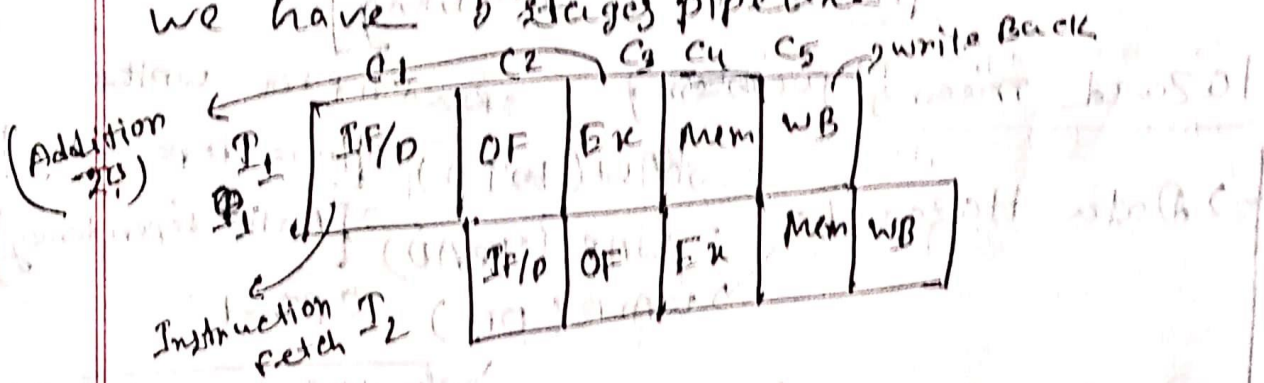 we have 5 stages
C1 C2 C3 C4 C5 write Back
(Addition
I1 IF/D OF Ex Mem WB
I2 IF/D OF Ex Mem WB
Instruction
fetch